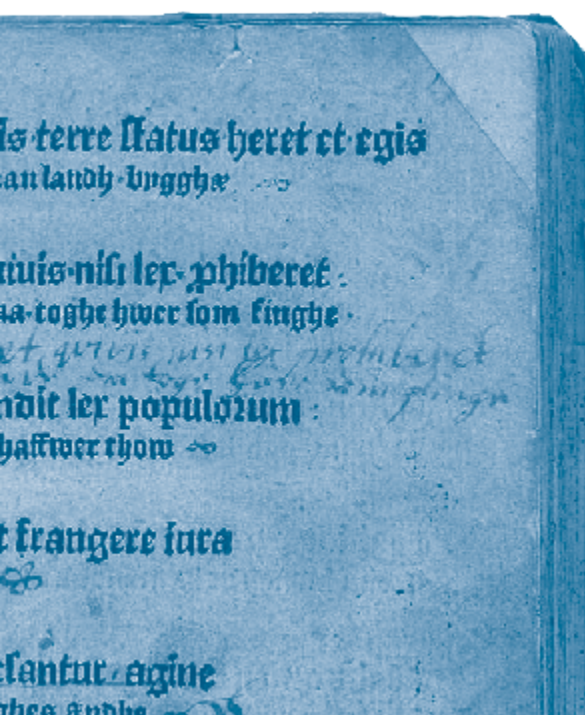 is terre status heret et egis
an landh · bygghæ
uiuis · nisi lex · phiberet :
aa · toghe hwer som finghe ·
et quiuis nisi lex prohiberet
ndit lex populorum :
haffwer thow
t frangere iura
santur · agine
ghes